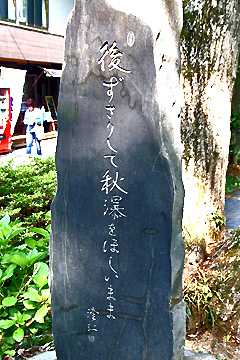 後ずさりして秋瀑をほしいまま